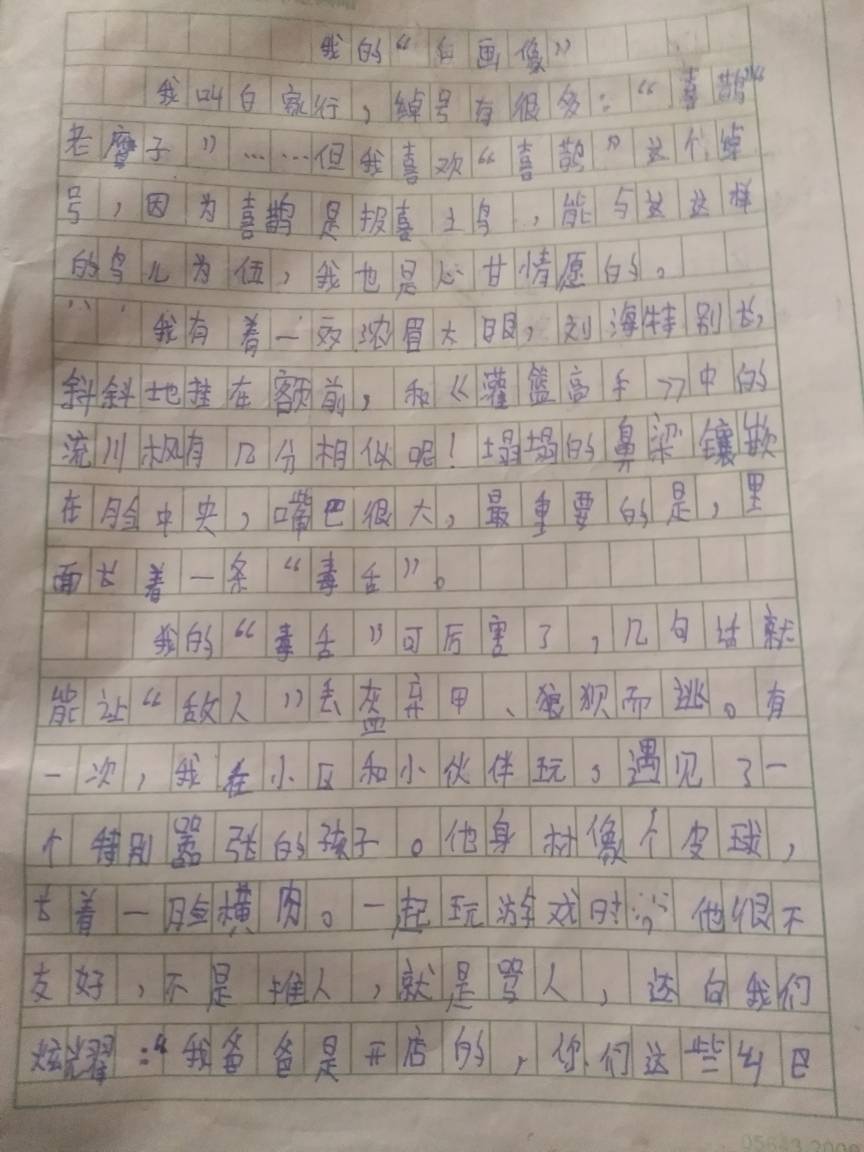 我的“自画像”
我叫白家行，绰号有很多：“喜鹊”“
老磨子”……但我喜欢“喜鹊”这个绰
号，因为喜鹊是报喜之鸟，能与这这样
的鸟儿为伍，我也是心甘情愿的。
我有着一双浓眉大眼，刘海特别长，
斜斜地挂在额前，和《灌篮高手》中的
流川枫有几分相似呢！塌塌的鼻梁镶嵌
在脸中央，嘴巴很大，最重要的是，里
面长着一条“毒舌”。
我的“毒舌”可厉害了，几句话就
能让“敌人”丢盔弃甲、狼狈而逃。有
一次，我在小区和小伙伴玩，遇见了一
个特别嚣张的孩子。他身材像个皮球，
长着一脸横肉。一起玩游戏时，他很不
友好，不是推人，就是骂人，还向我们
炫耀：“我爸爸是开店的，你们这些
05643 2000